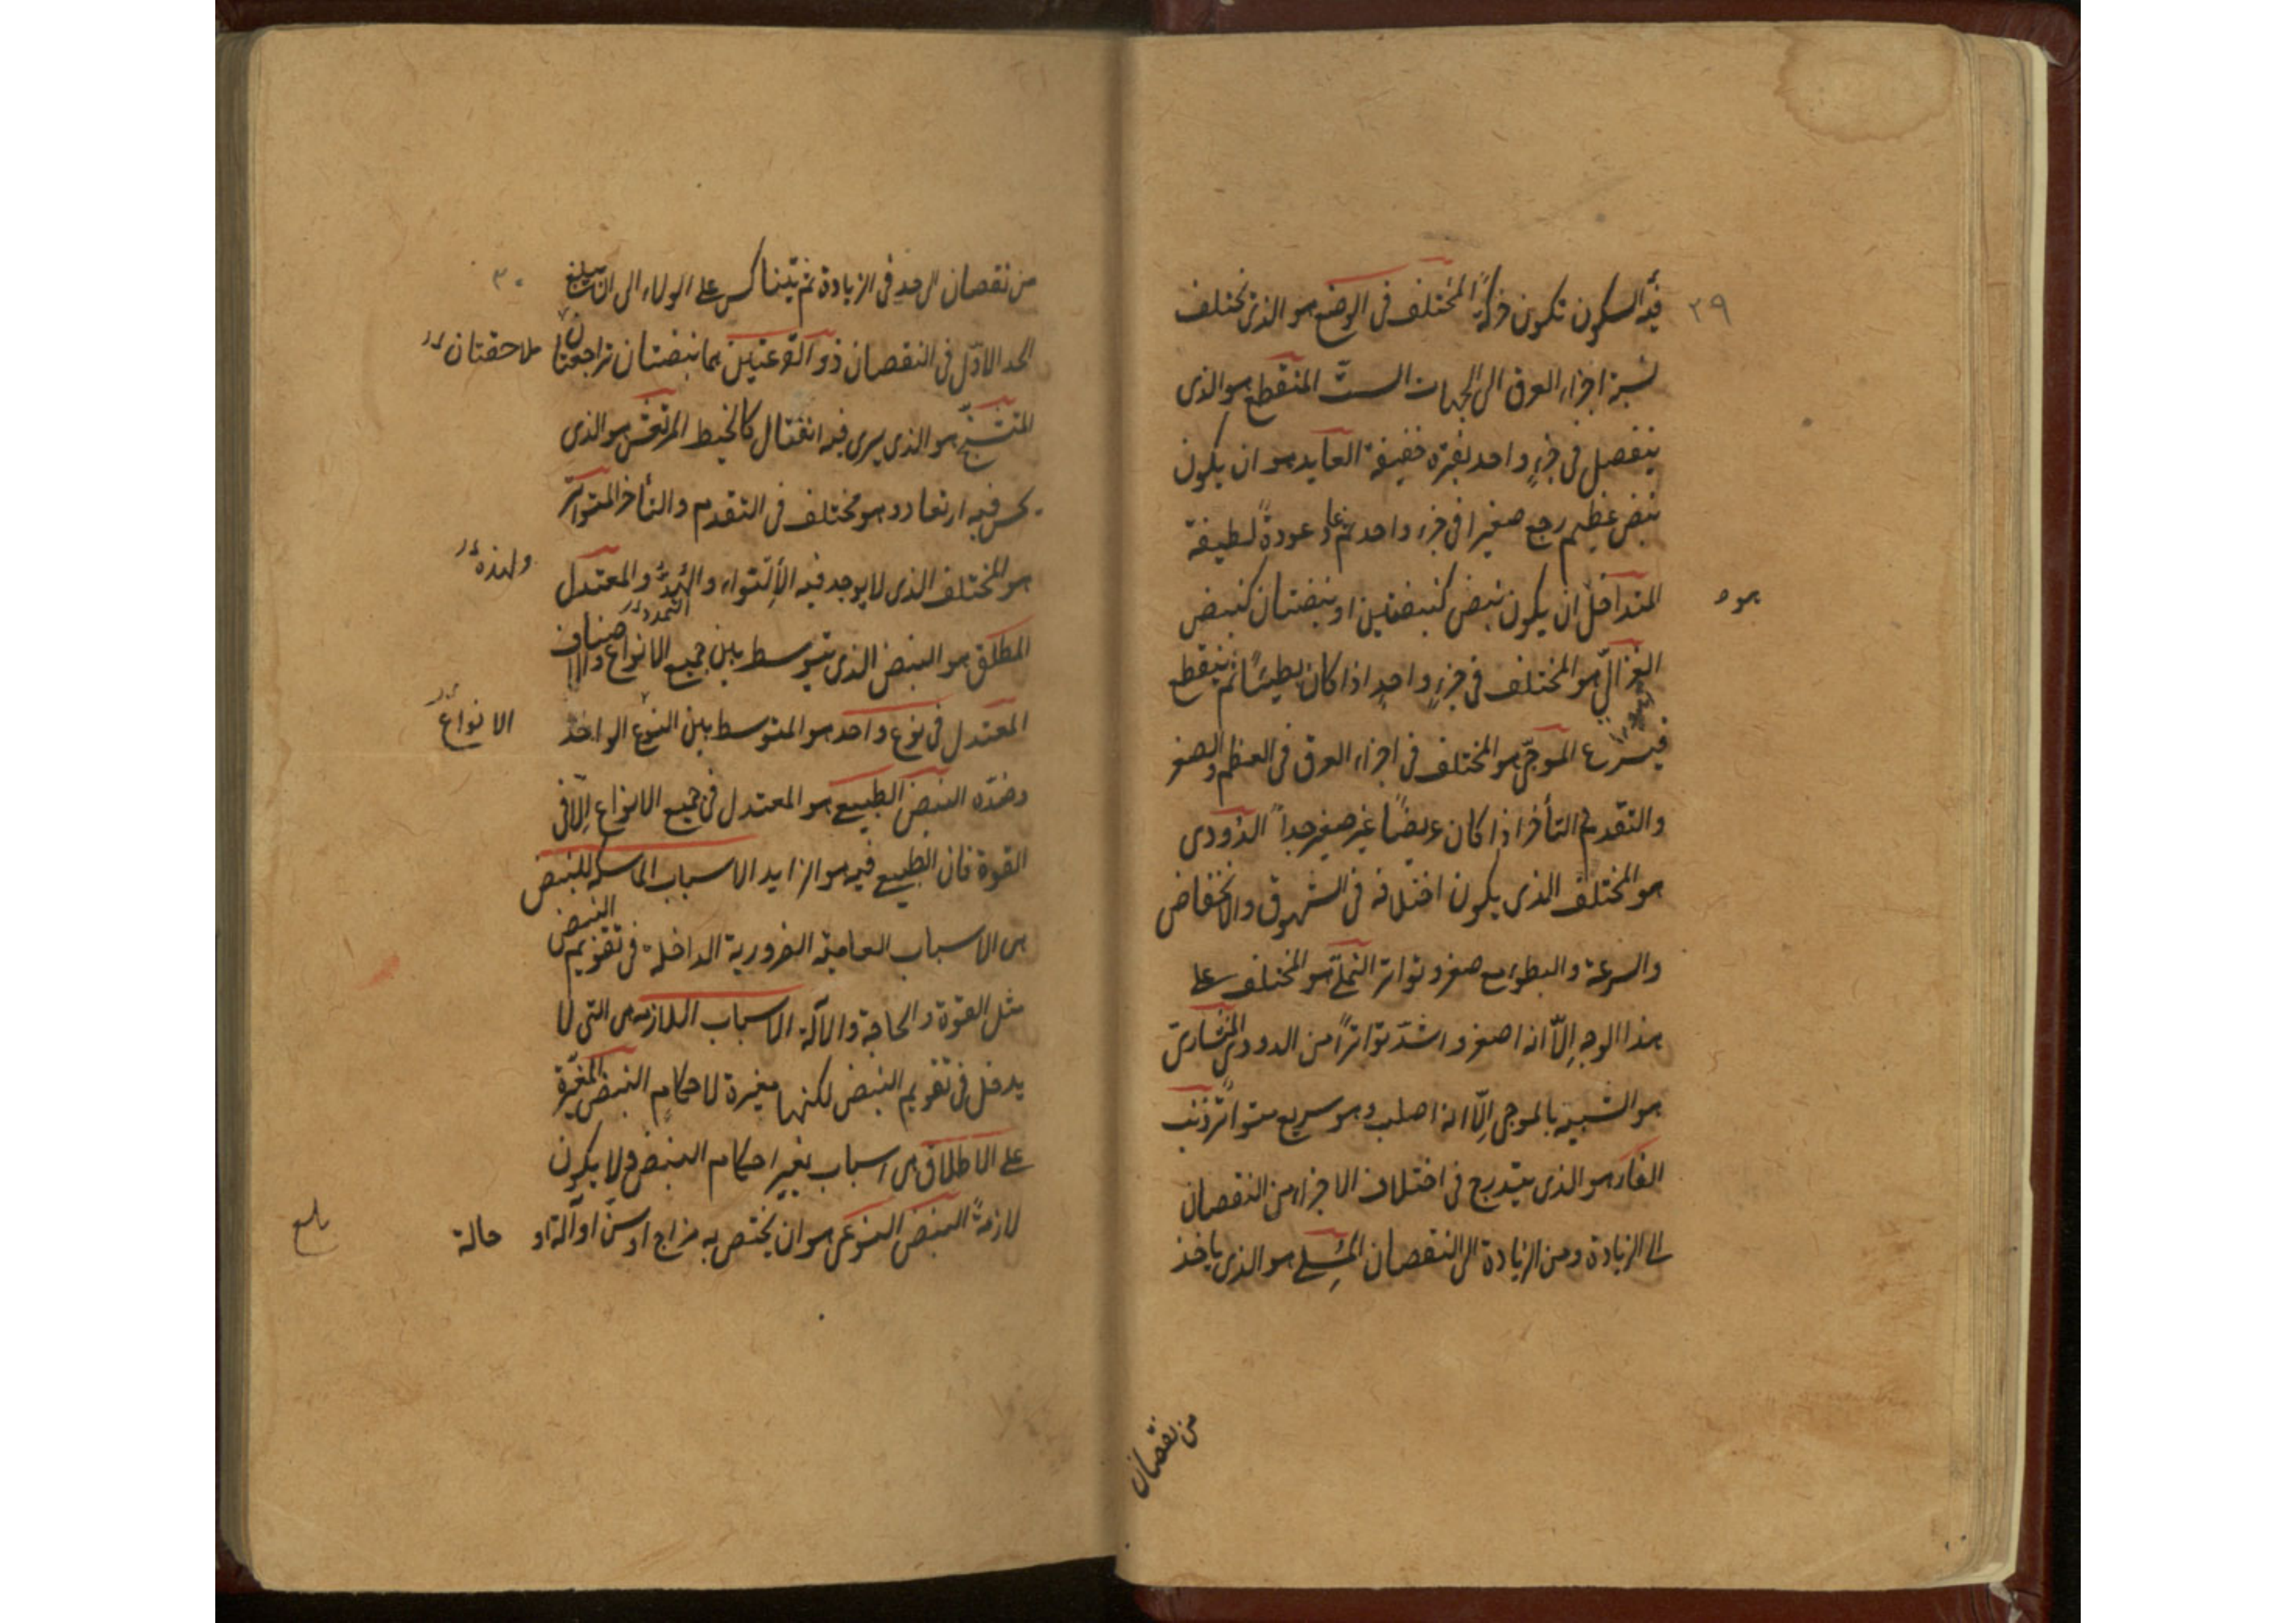 ٢٩
فيه السكون تكون حركةً المختلف فى الوضع هو الذى تختلف
نسبة اجزاء العرق الى الجهات الست المنقطع هو الذى
ينفصل فى جزءٍ واحد بفترة خفيفة العايد هو ان يكون
نبض عظيم رجع صغيرا فى جزء واحد ثم عاد عودةً لطيفة
المتداخل ان يكون نبض كنبضتين او نبضتان كنبض
هو
الغزالىّ هو المختلف فى جزءٍ واحدٍ اذا كان بطيئًا ثم ينقطع
فيسرع الموجىّ هو المختلف فى اجزاء العرق فى العظم والصغر
والتقدم والتأخر اذا كان عريضًا غير صغير جداً الدّودى
هو المختلف الذى يكون اختلافه فى الشهوق والانخفاض
والسرعة والبطوء مع صغر وتواتر النملى هو المختلف على
هذا الوجه الّا انه اصغر واشدّ تواتراً من الدودى المنشارىّ
هو الشبيه بالموجى الّا انه اصلب وهو سريع متواتر ذنب
الفار هو الذى يتدرج فى اختلاف الاجزاء من النقصان
الى الزيادة ومن الزيادة الى النقصان المسلى هو الذى ياخذ
من نقصان
٣٠
من نقصان الى حدٍ فى الزيادة ثم يتناكس على الولاء الى ان يبلغ
الحد الاوّل فى النقصان ذو القرعتين هما نبضتان تراجعتا
ملاحقتان
المتشنّج هو الذى يرى فيه انفتال كالخيط المرتعش هو الذى
يحس فيه ارتعاد وهو مختلف فى التقدم والتأخر المتواتر
هو المختلف الذى لا يوجد فيه الألتواء والهزة والمعتدل
ولهذه
التمدد
المطلق هو النبض الذى يتوسط بين جميع الانواع والاصناف
المعتدل فى نوع واحد هو المتوسط بين النوع الواحد
الانواع
وضدّه النبض الطبيعى هو المعتدل فى جميع الانواع الّا فى
القوة فان الطبيعى فيه هو الزايد الاسباب الماسكه للنبض
هى الاسباب العامية الضرورية الداخلة فى تقويم النبض
مثل القوة والحاجة والآلة الاسباب اللازمه هى التى لا
يدخل فى تقويم النبض لكنها مغيرة لاحكامٍ النبض المغيّرة
على الاطلاق هى اسباب تغير احكام النبض ولا يكون
لازمةً النبض النوعى هو ان يختص به مزاج او سنّ او آلة او حالة